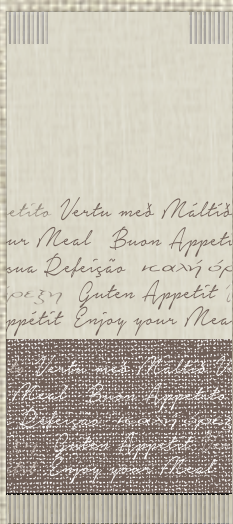 etito Vertu með Máltíð
ur Meal Buon Appeti
sua Refeição καλή όρ
ρεξη Guten Appetit
ppétit Enjoy your Mea
Vertu með Máltíð V
Meal Buon Appetito
Refeição καλή όρεξ
Guten Appetit
Enjoy your Meal